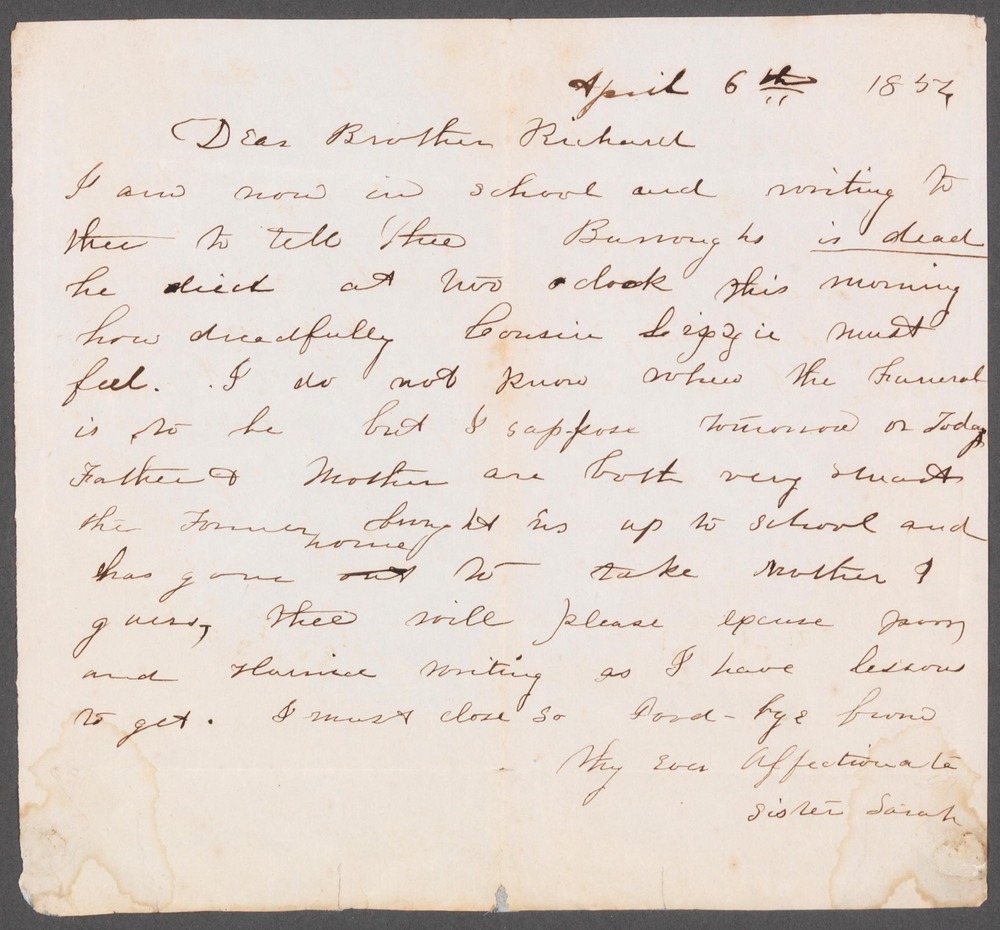 April 6th 1854
Dear Brother Richard
I am now in school and writing to
thee to tell thee Burroughs is dead
he died at two oclock this morning
how dreadfully Cousin Lizzie must
feel. I do not know when the Funeral
is to be but I suppose tomorrow or Today
Father & Mother are both very smart
the Former brought us up to school and
home
has gone out to take Mother I
guess, thee will please excuse poor
and Hurried writing as I have lessons
to get. I must close so Good-bye from
Thy Ever Affectionate
Sister Sarah